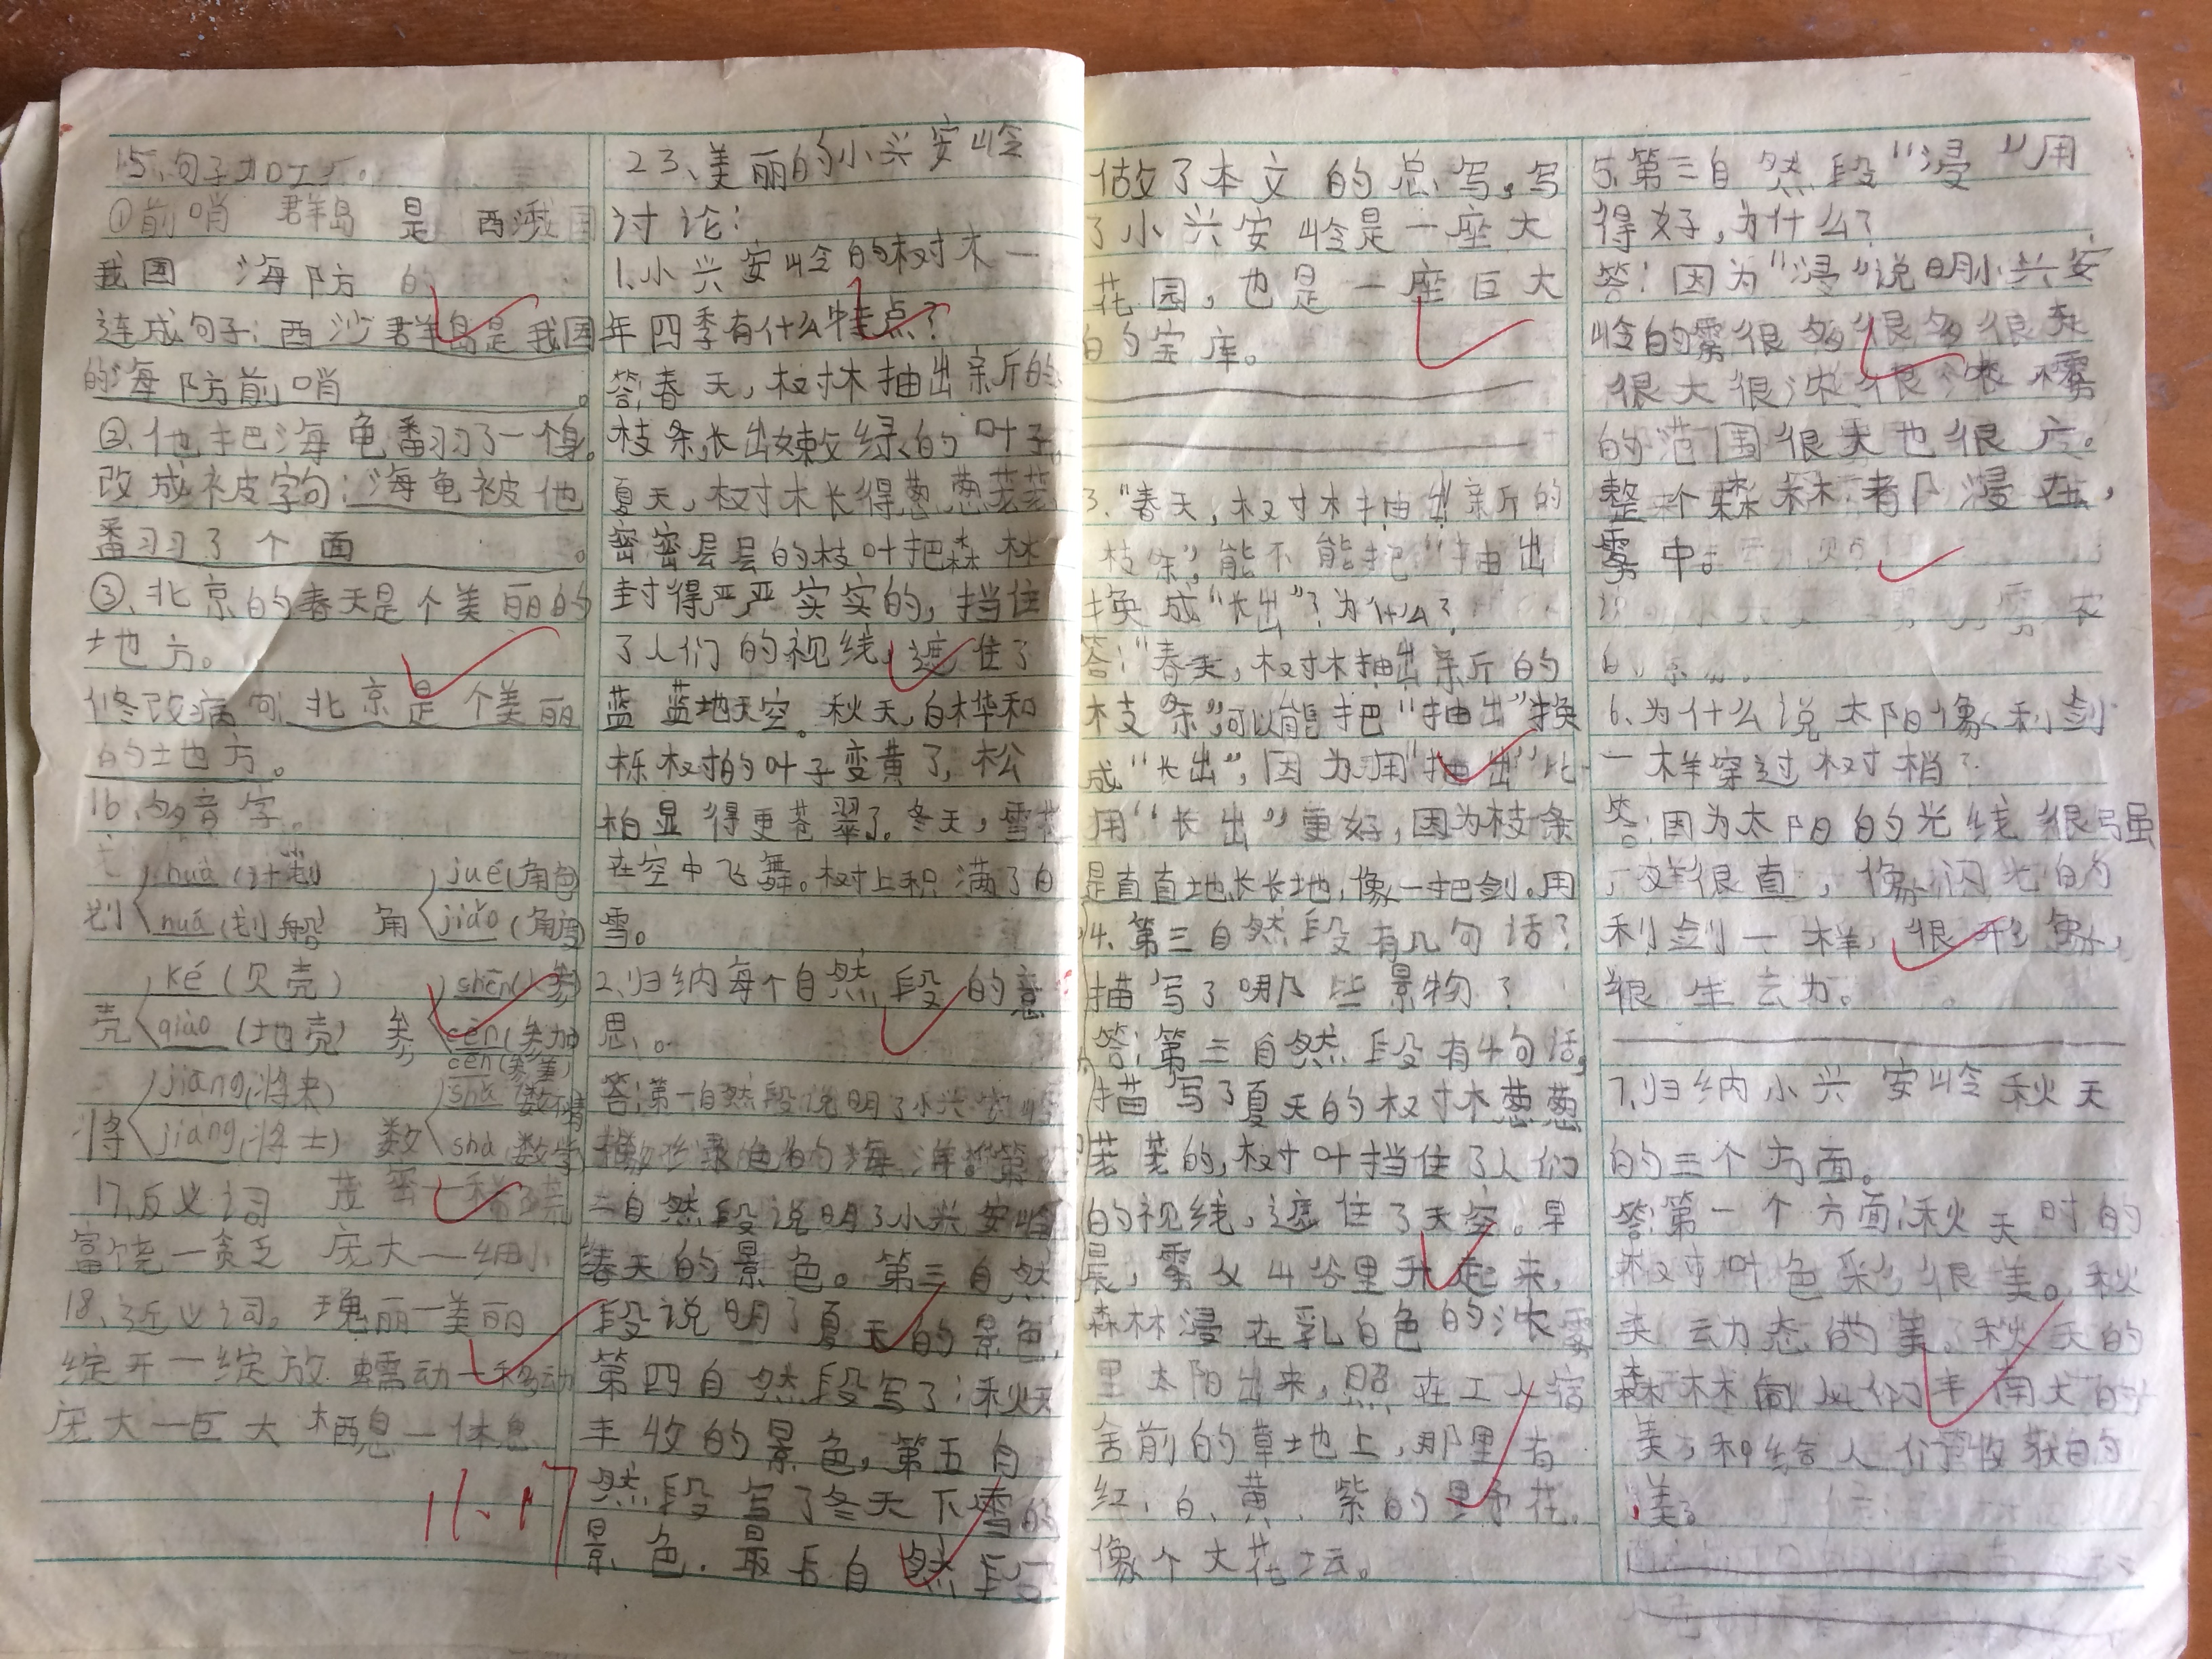 15、句子加工厂。
①前哨 群岛 是 西
我国 海防 的
连成句子：西沙群岛是我国
的海防前哨。
②、他把海龟翻了一个身。
改成被字句：海龟被他
翻了个面。
③、北京的春天是个美丽的
地方。
修改病句：北京是个美丽
的地方。
16、多音字。
划 huà(计划) 角 jué(角色)
huá(划船) jiǎo(角度)
壳 ké(贝壳) 参 shēn
qiào(地壳) cān(参加)
cēn(参差)
将 jiāng(将来) 数 shǔ
jiàng(将士) 数学
17、反义词 茂密一稀
富饶一贫乏 庞大一细小
18、近义词。瑰丽一美丽
绽开一绽放 蠕动一移动
庞大一巨大 栖息一休息
11、17
23、美丽的小兴安岭
讨论：
1、小兴安岭的树木一
年四季有什么特点？
答：春天，树木抽出新的
枝条，长出嫩绿的叶子。
夏天，树木长得葱葱茏茏，
密密层层的枝叶把森林
封得严严实实的，挡住
了人们的视线，遮住了
蓝蓝地天空。秋天，白桦和
栎树的叶子变黄了，松
柏显得更苍翠了。冬天，雪花
在空中飞舞。树上积满了白
雪。
2、归纳每个自然段的意
思。
答：第一自然段说明了小兴安岭
海洋。第
二自然段说明了小兴安岭
春天的景色。第三自然
段说明了夏天的景色，
第四自然段写了：秋天
丰收的景色，第五自
然段写了冬天下雪的
景色。最后自然段
做了本文的总写，写
了小兴安岭是一座大
花园，也是一座巨大
的宝库。
3、“春天，树木抽出新的
枝条”，能不能把“抽出
换成“长出”？为什么？
答：“春天，树木抽出新的
枝条”可以能把“抽出”换
成“长出”，因为用“抽出”比
用“长出”更好，因为枝条
是直直地长长地，像一把剑。用
4、第三自然段有几句话？
描写了哪些景物？
答：第三自然段有4句话，
描写了夏天的树木葱葱
茏茏的，树叶挡住了人们
的视线，遮住了天空。早
晨，雾从山谷里升起来，
森林浸在乳白色的浓雾
里太阳出来，照在工人宿
舍前的草地上，那里有
红、白、黄、紫的野花，
像个大花坛。
5、第三自然段“浸”用
得好，为什么？
答：因为“浸”说明小兴安
岭的雾很多很多很
很大很浓很 雾
的范围很大也很广。
整个森林都浸在，
雾中。
6、为什么说太阳像利剑
一样穿过树梢？
答：因为太阳的光线很强
，又很直，像闪光的
利剑一样，很形象，
很生动。
7、归纳小兴安岭秋天
的三个方面。
答：第一个方面：秋天时的
树叶色彩很美。秋
天动态的美。秋天的
森林 人们 的
美，和给人们 收获的
美。